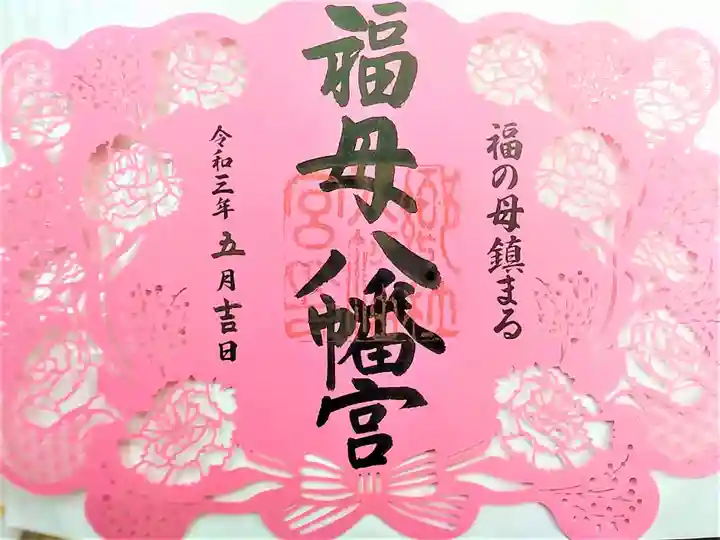 福の母鎮まる
福母八幡宮
令和三年五月吉日